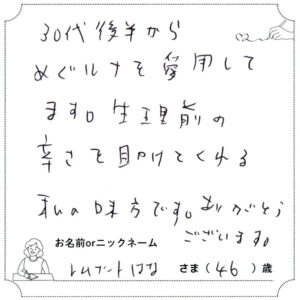 30代後半から
めぐルナを愛用して
ます。生理前の
辛さを助けてくれる
私の味方です。ありがとう
ございます。
お名前orニックネーム
さま(46)歳